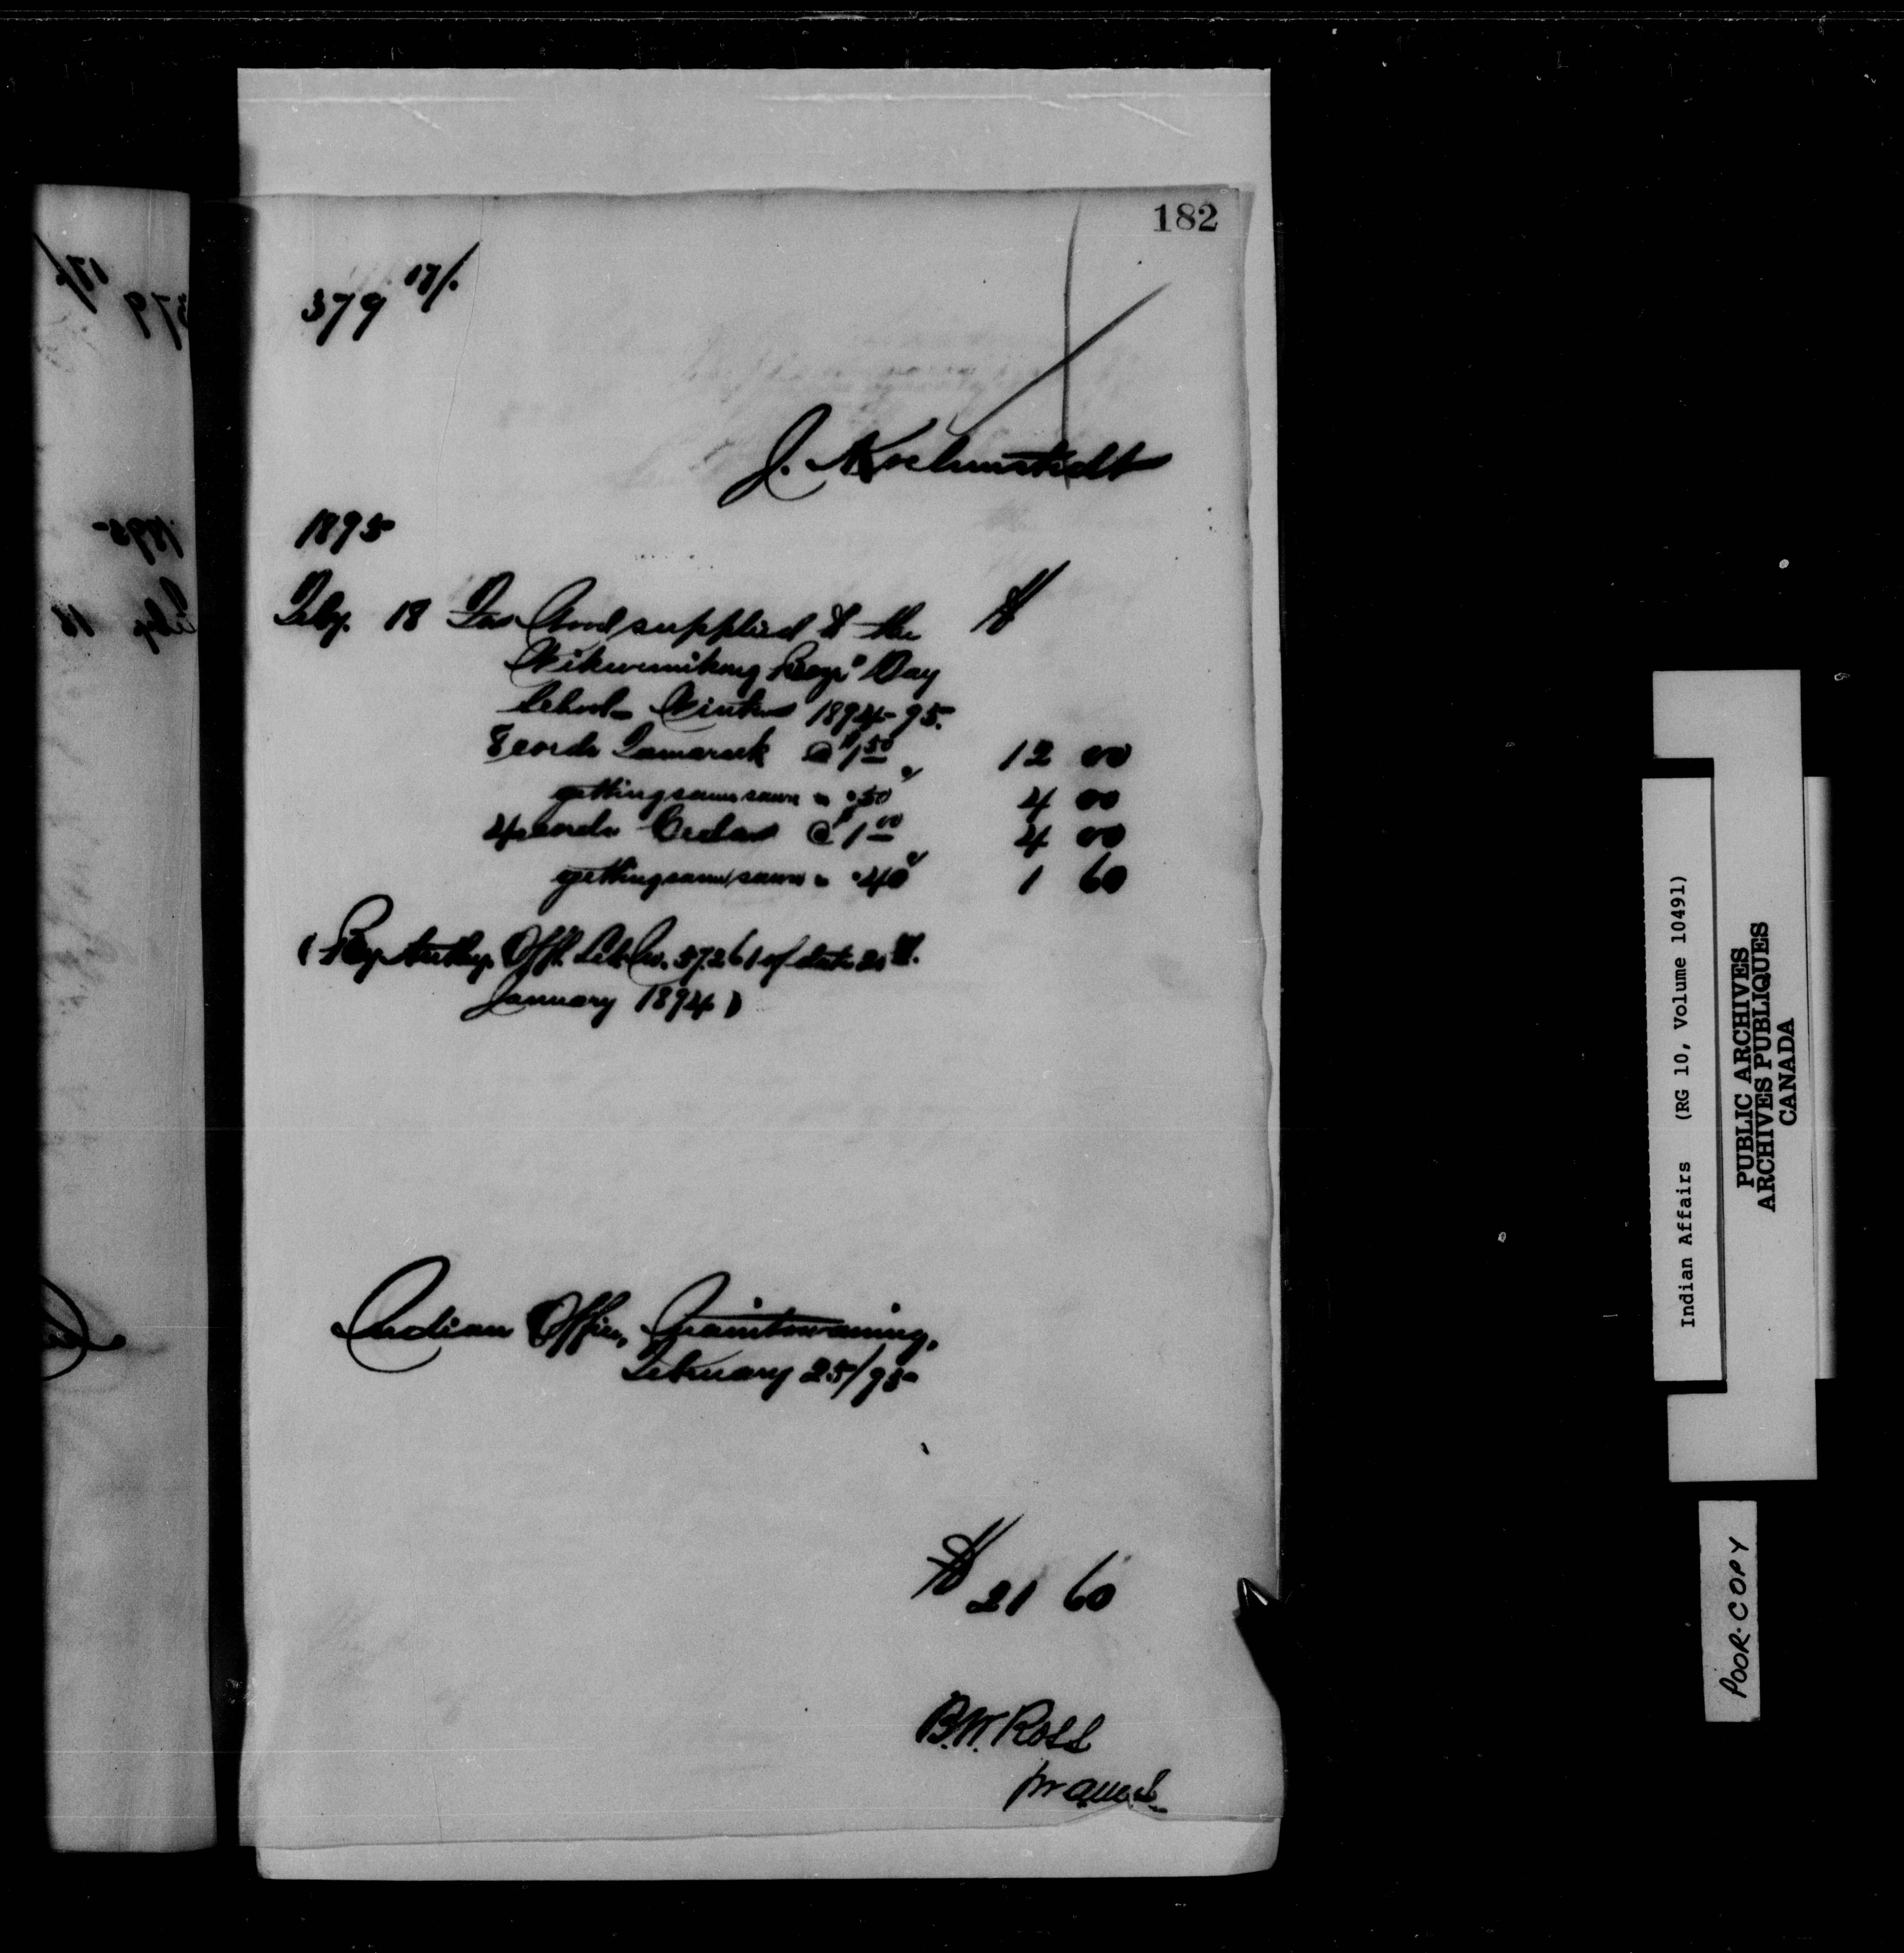 182
379 17/.
J.
1895
Feby. 18 To Wood supplied to the $
Wikwemikong Boys' Day
School Winter 1894-95.
8 cords Tamarack @ $1 50 12 00
getting same sawn " .50 c 4 00
4 cords Cedar @ $1 00 4 00
getting same sawn " .40 c 1 60
( Offl. Let. No. 57261 of date
January 1894 )
Indian Office, Manitowaning,
February 25/95
$ 21 60
B.W. Ross
pr
Indian Affairs (RG 10, Volume 10491)
PUBLIC ARCHIVES
ARCHIVES PUBLIQUES
CANADA
POOR-COPY